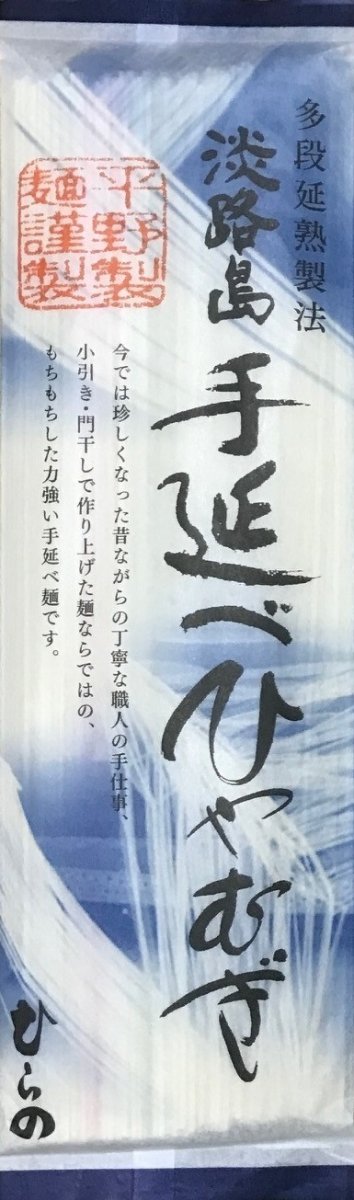 多段延熟製法
淡路島 手延べひやむぎ
平野製
麺謹製
今では珍しくなった昔ながらの丁寧な職人の手仕事、
小引き・門干しで作り上げた麺ならではの、
もちもちした力強い手延べ麺です。
ひらの